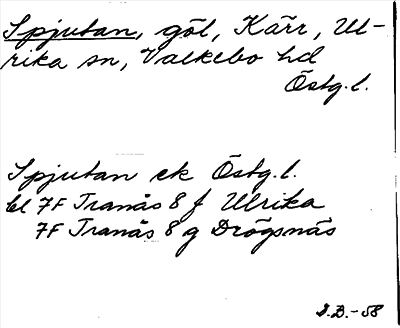 Spjutan, göl, Kärr, Ul-
rika sn, Valkebo hd
Östg. l.
Spjutan ek Östg. l.
bl 7F Tranås 8 f Ulrika
7F Tranås 8 g Drögsnäs
S.B.-58